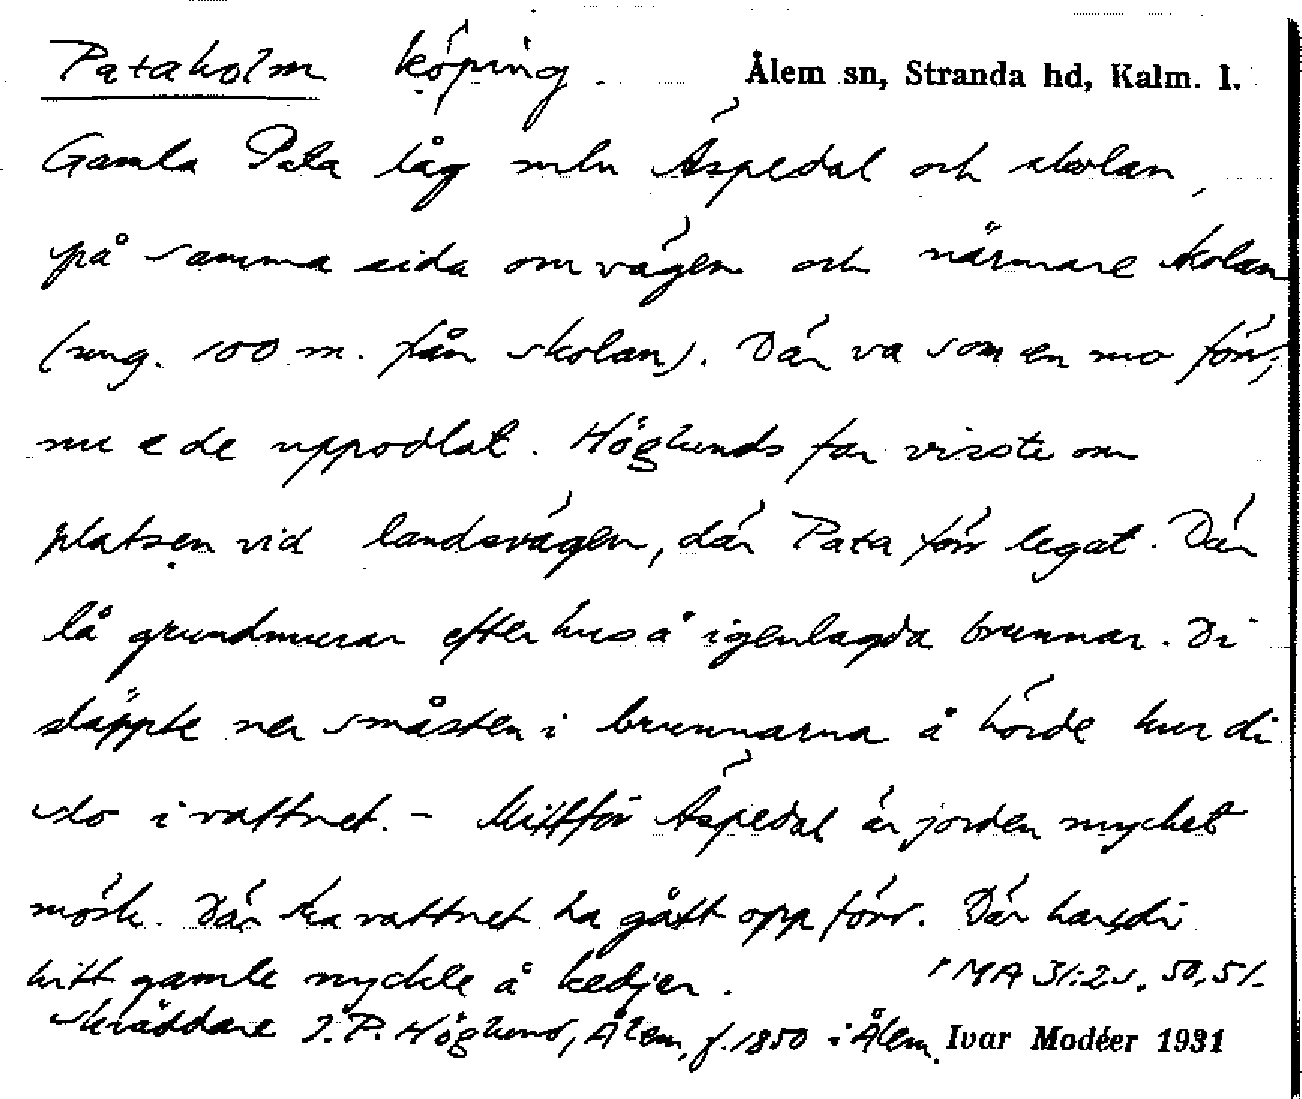 Pataholm köping. Ålem sn, Stranda hd, Kalm. l.
Gamla Pata låg mln Äspedal och skolan,
på samma sida om vägen och närmare skolan
(ung. 100 m. från skolan). Där va som en mo förr,
nu e de uppodlat. Höglunds far visste om
platsen vid landsvägen, där Pata förr legat. Där
lå grundmurar efter hus å igenlagda brunnar. Di
släppte ner småsten i brunnarna å hörde hur di
slo i vattnet. - Mitt för Äspedal är jorden mycket
mörk. Där ska vattnet ha gått opp förr. Där har di
hitt gamle nyckle å kedjer. MA 31:2 s. 50, 51.
Skräddare J.P. Höglund, Ålem, f. 1850 i Ålem. Ivar Modéer 1931